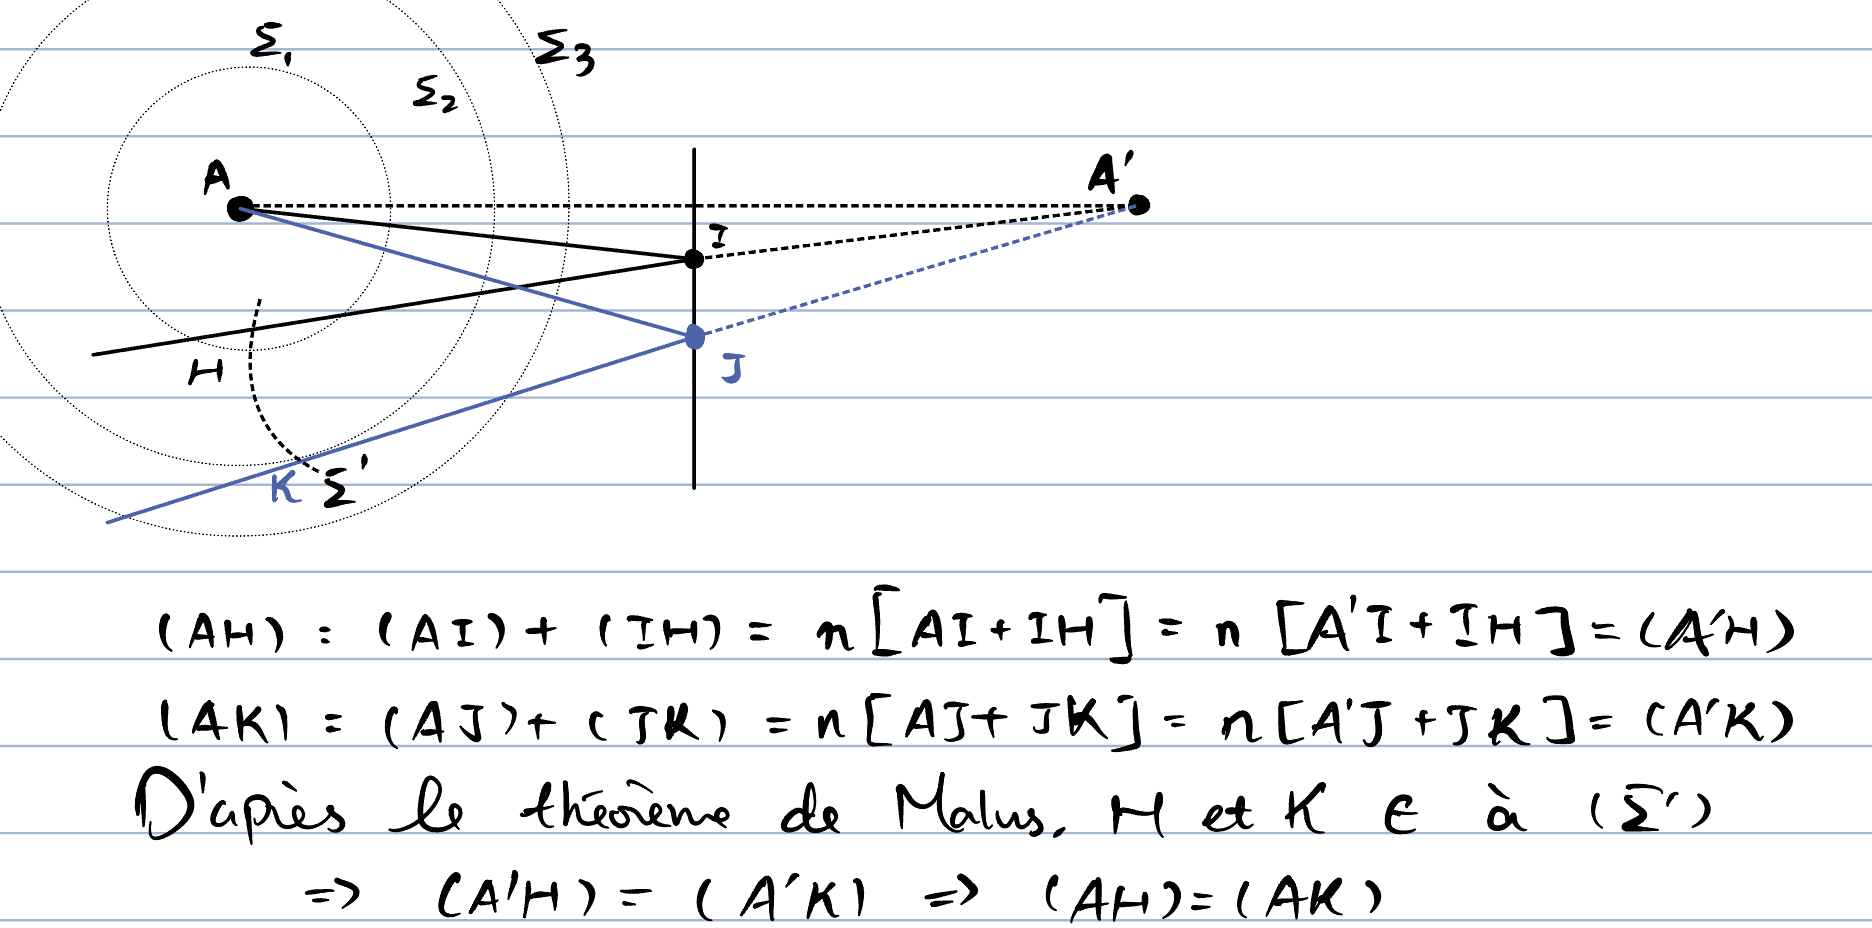 Σ₁
Σ₃
Σ₂
A
A'
I
H
J
K Σ'
(AH) = (AI) + (IH) = n[AI + IH] = n [A'I + IH] = (A'H)
(AK) = (AJ) + (JK) = n[AJ + JK] = n[A'J + JK] = (A'K)
D'après le théorème de Malus, H et K ∈ à (Σ')
=> (A'H) = (A'K) => (AH) = (AK)